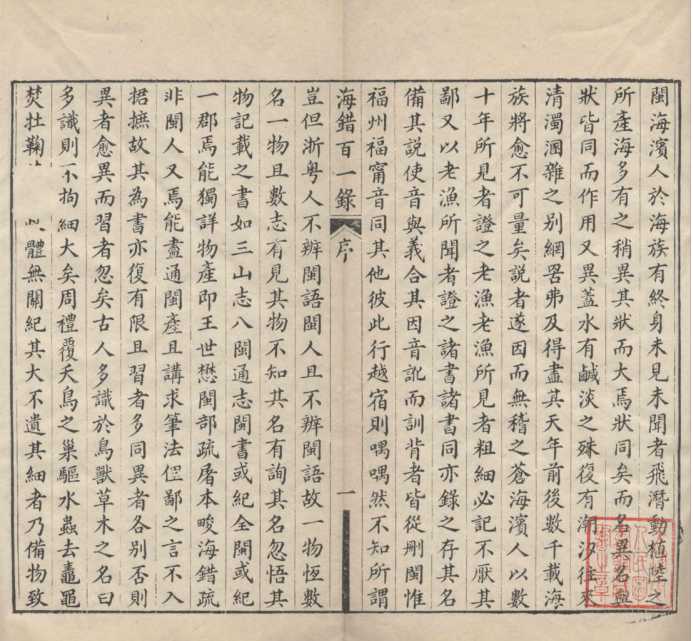 閩海濱人於海族有終身未見未聞者飛潛動植陸之
所產海多有之稍異其狀而大焉狀同矣而名異名與
狀皆同而作用又異蓋水有鹹淡之殊復有潮汐往來
清濁溷雜之別網罟弗及得盡其天年前後數千載海
族將愈不可量矣說者遂因而無稽之蒼海濱人以數
十年所見者證之老漁老漁所見者粗細必記不厭其
鄙又以老漁所聞者證之諸書諸書同亦錄之存其名
備其說使音與義合其因音訛而訓背者皆從刪閩惟
福州福甯音同其他彼此行越宿則喁喁然不知所謂
海錯百一錄 序 一
豈但浙粵人不辨閩語閩人且不辨閩語故一物恆數
名一物且數志有見其物不知其名有詢其名忽悟其
物記載之書如三山志八閩通志閩書或紀全閩或紀
一郡焉能獨詳物產即王世懋閩部疏屠本畯海錯疏
非閩人又焉能盡通閩產且講求筆法俚鄙之言不入
捃摭故其為書亦復有限且習者多同異者各別否則
異者愈異而習者忽矣古人多識於鳥獸草木之名曰
多識則不拘細大矣周禮覆夭鳥之巢驅水蟲去鼃黽
焚牡鞠 體無關紀其大不遺其細者乃備物致